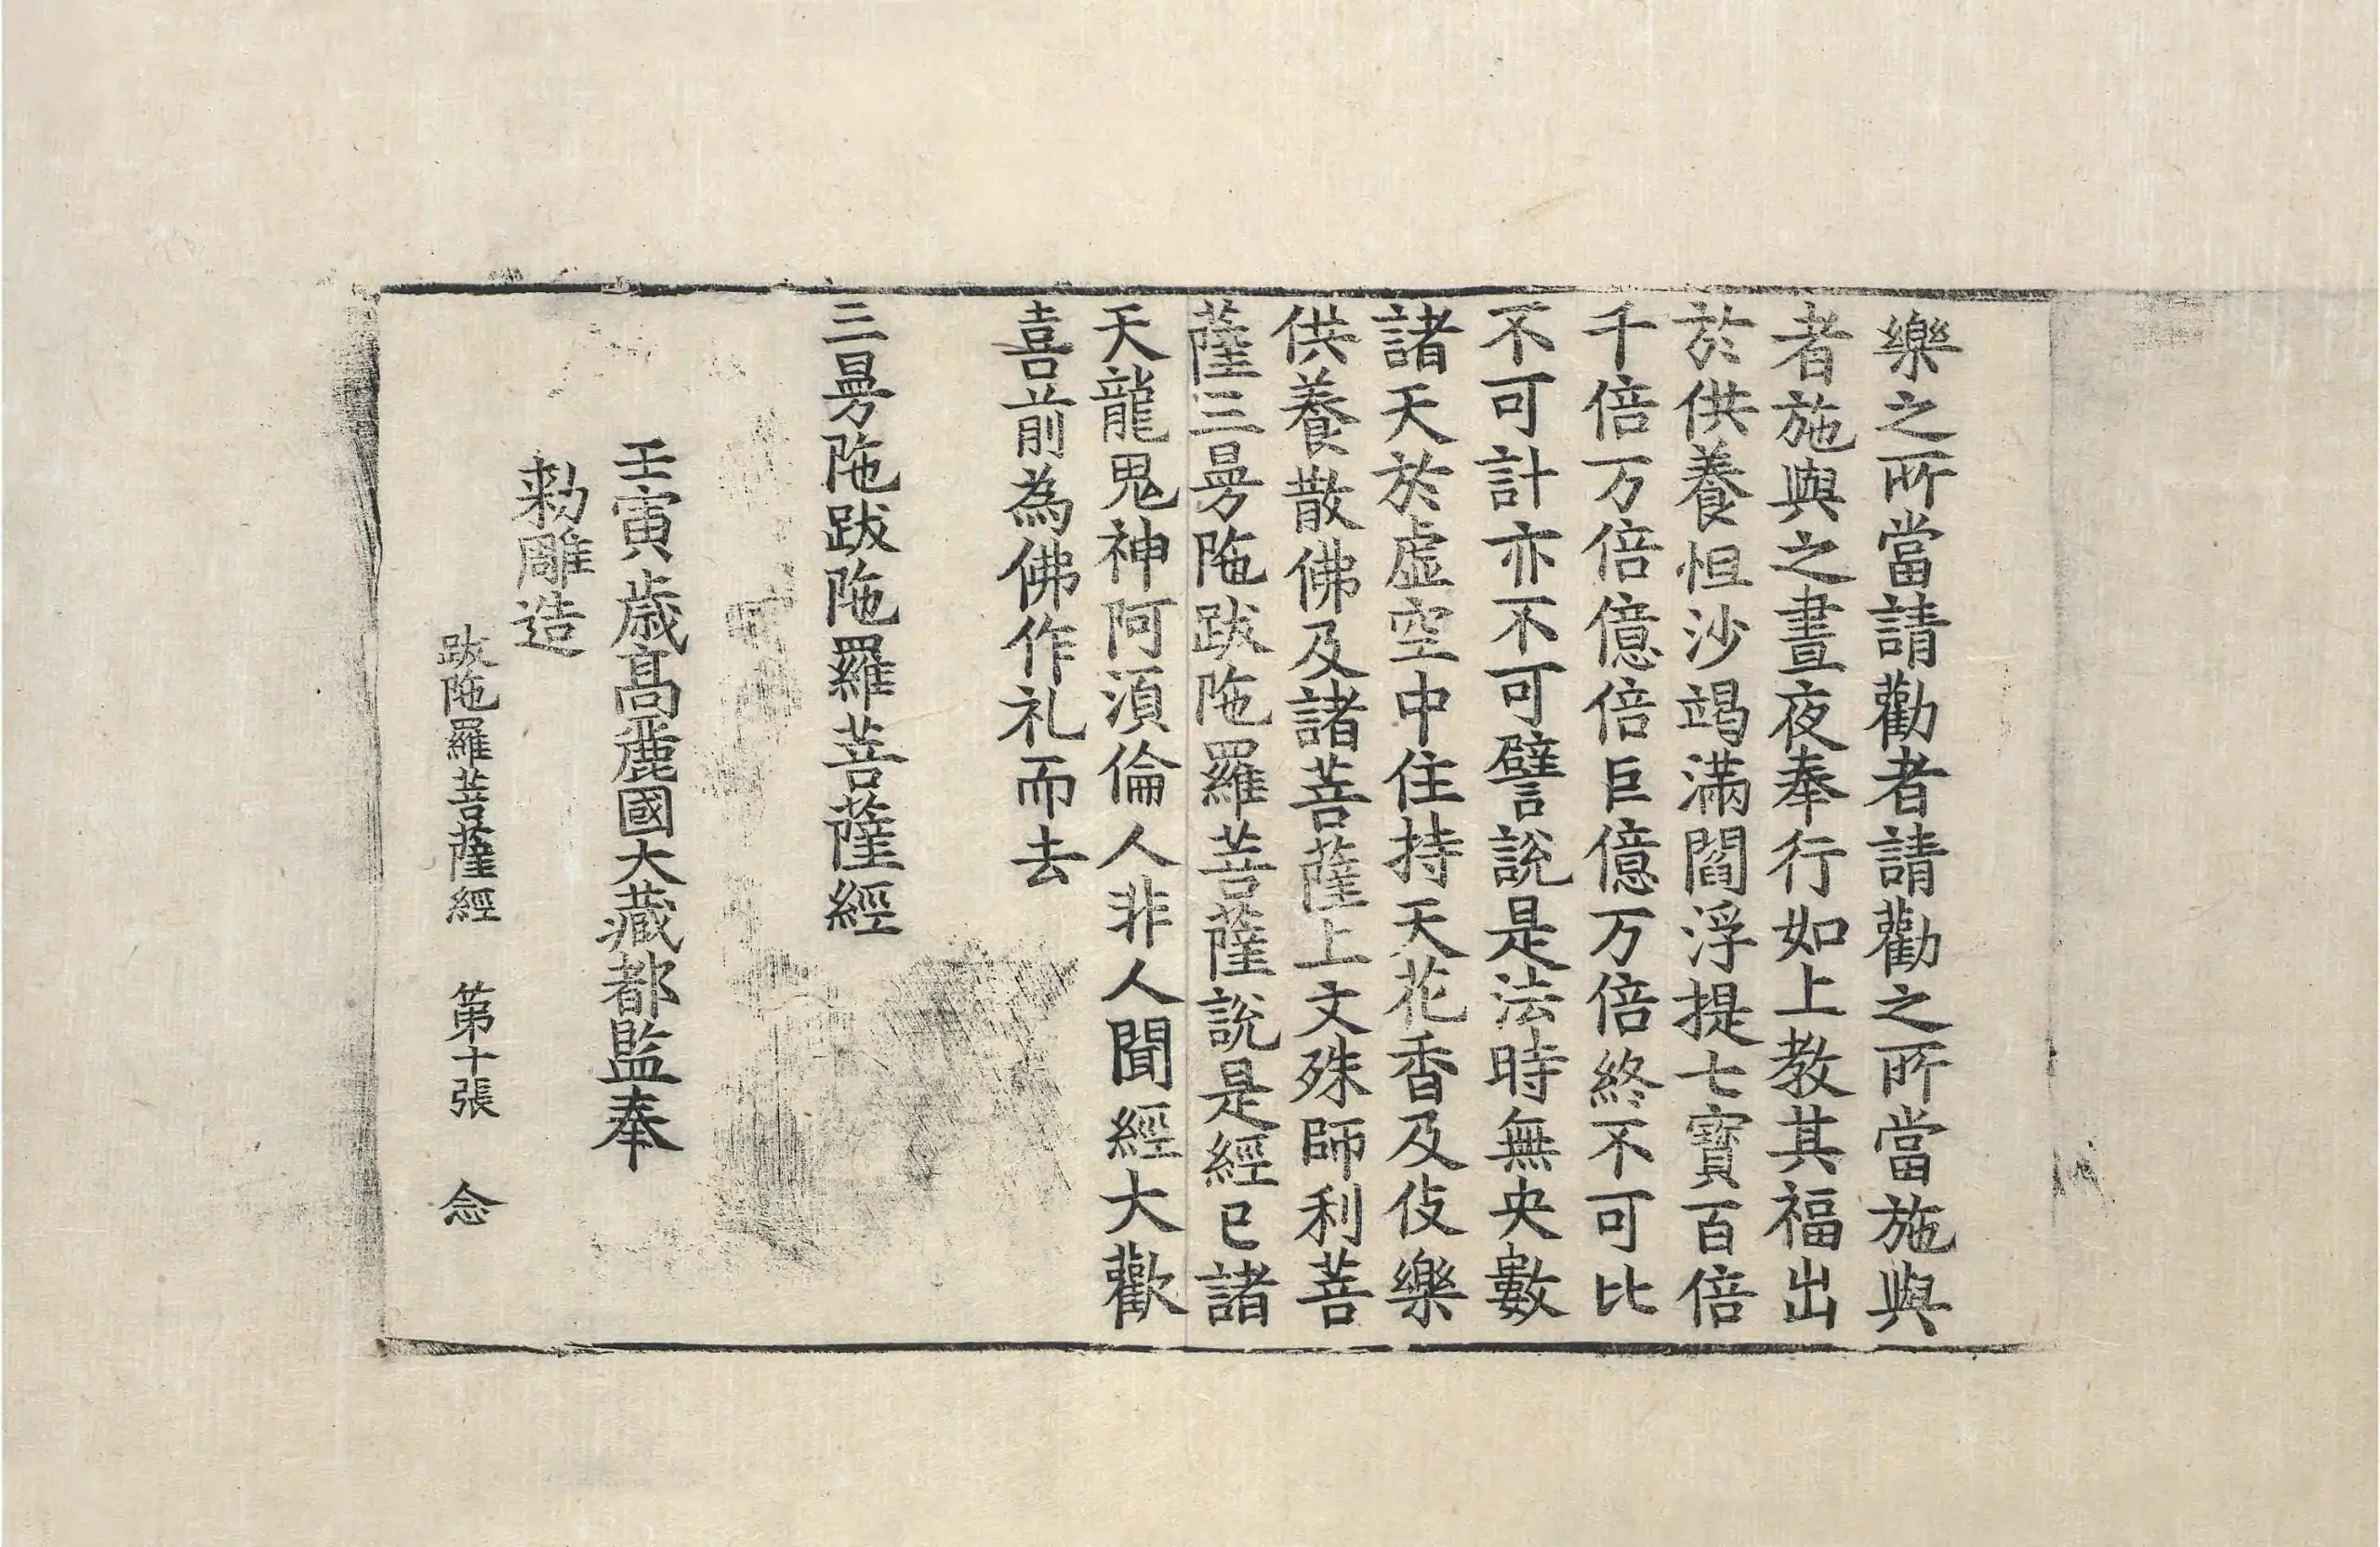 樂之所當請勸者請勸之所當施與
者施與之晝夜奉行如上教其福出
於供養怛沙竭滿閻浮提七寶百倍
千倍万倍億倍巨億万倍終不可比
不可計亦不可譬說是法時無央數
諸天於虛空中住持天花香及伎樂
供養散佛及諸菩薩上文殊師利菩
薩三曼陁跋陁羅菩薩說是經已諸
天龍鬼神阿湏倫人非人聞經大歡
喜前為佛作礼而去
三曼陁跋陁羅菩薩經
壬寅歲高麗國大藏都監奉
勑雕造
跋陁羅菩薩經 第十張 念